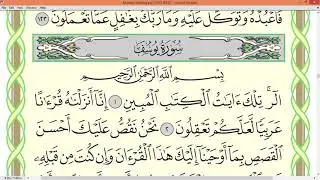 فَٱعۡبُدۡهُ وَتَوَكَّلۡ عَلَيۡهِۚ وَمَا رَبُّكَ بِغَٰفِلٍ عَمَّا تَعۡمَلُونَ ١٢٣
سُورَةُ يُوسُفَ
بِسۡمِ ٱللَّهِ ٱلرَّحۡمَٰنِ ٱلرَّحِيمِ
الٓرۚ تِلۡكَ ءَايَٰتُ ٱلۡكِتَٰبِ ٱلۡمُبِينِ ١ إِنَّآ أَنزَلۡنَٰهُ قُرۡءَٰنًا
عَرَبِيّٗا لَّعَلَّكُمۡ تَعۡقِلُونَ ٢ نَحۡنُ نَقُصُّ عَلَيۡكَ أَحۡسَنَ
ٱلۡقَصَصِ بِمَآ أَوۡحَيۡنَآ إِلَيۡكَ هَٰذَا ٱلۡقُرۡءَانَ وَإِن كُنتَ مِن قَبۡلِهِۦ